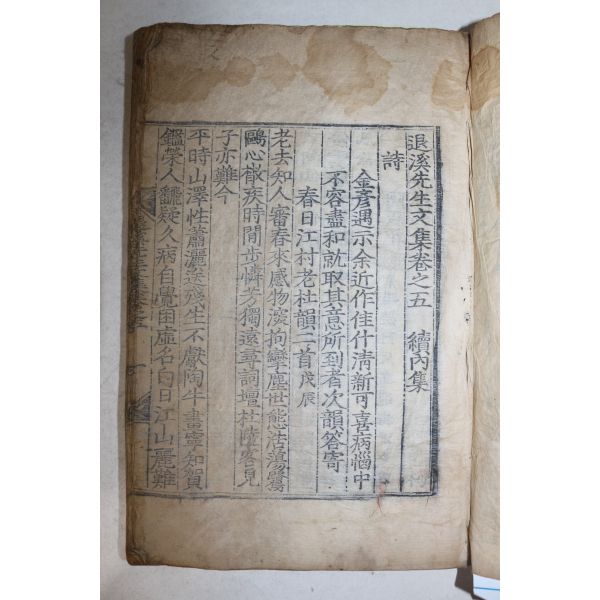 退溪先生文集卷之五　續內集
詩
金彥遇示余近作佳什淸新可喜病惱中
不容盡和就取其意所到者次韻答寄
春日江村老杜韻二首戊辰
老去知人審春來感物深拘攣塵世態浩蕩鷺
鷗心散疾時閒步憐芳獨遠尋詩壇杜陵客見
子亦難今
平時山澤性蕭灑送殘生不獻陶牛畫寧知賀
鑑榮人飜疑久病自覺困虛名白日江山麗難